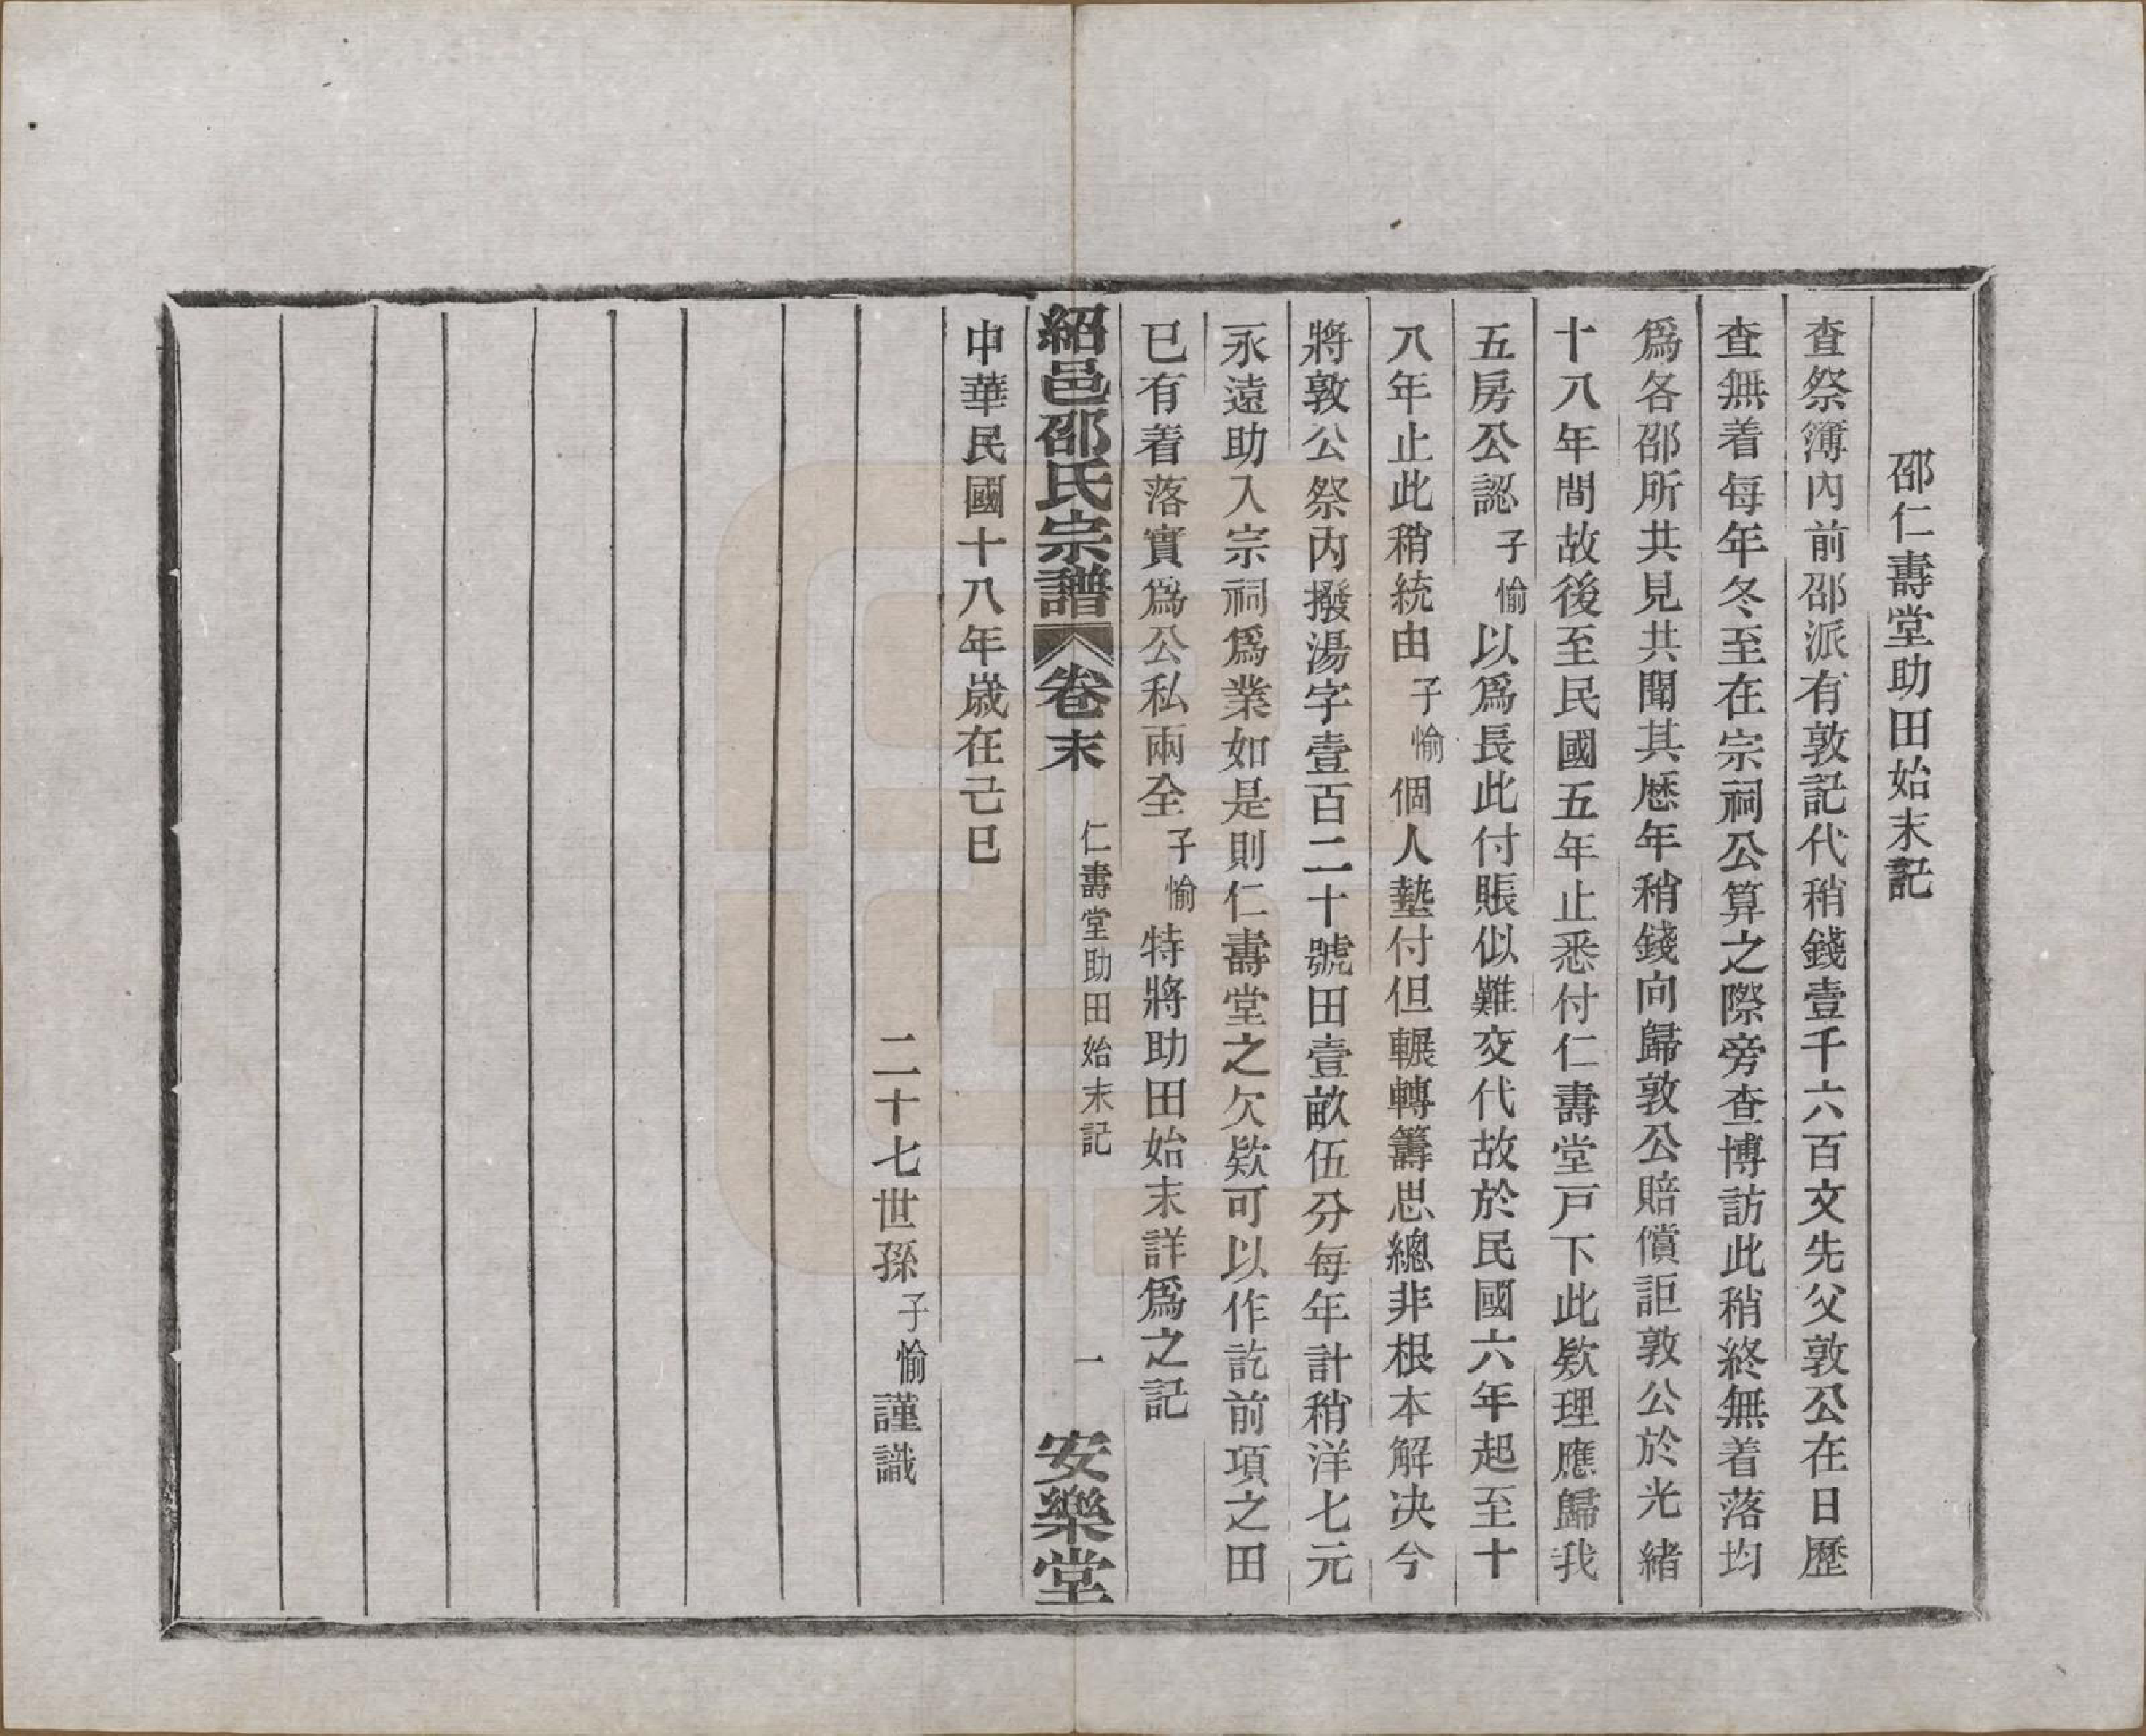 邵仁壽堂助田始末記
查祭簿內前邵派有敦記代稍錢壹千六百文先父敦公在日歷
查無着每年冬至在宗祠公算之際旁查博訪此稍終無着落均
爲各邵所共見共聞其歷年稍錢向歸敦公賠償詎敦公於光緒
十八年間故後至民國五年止悉付仁壽堂戸下此欵理應歸我
五房公認子愉以爲長此付賬似難交代故於民國六年起至十
八年止此稍統由子愉個人墊付但輾轉籌思總非根本解决兮
將敦公祭内撥湯字壹百二十號田壹畝伍分每年計稍洋七元
永遠助入宗祠爲業如是則仁壽堂之欠欵可以作訖前項之田
已有着落實爲公私兩全子愉特將助田始末詳爲之記
紹邑邵氏宗譜 卷末 仁壽堂助田始末記 一 安樂堂
中華民國十八年歲在己巳
二十七世孫子愉謹識